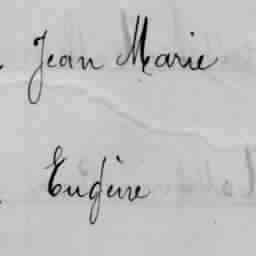 Jean Marie
Eugène